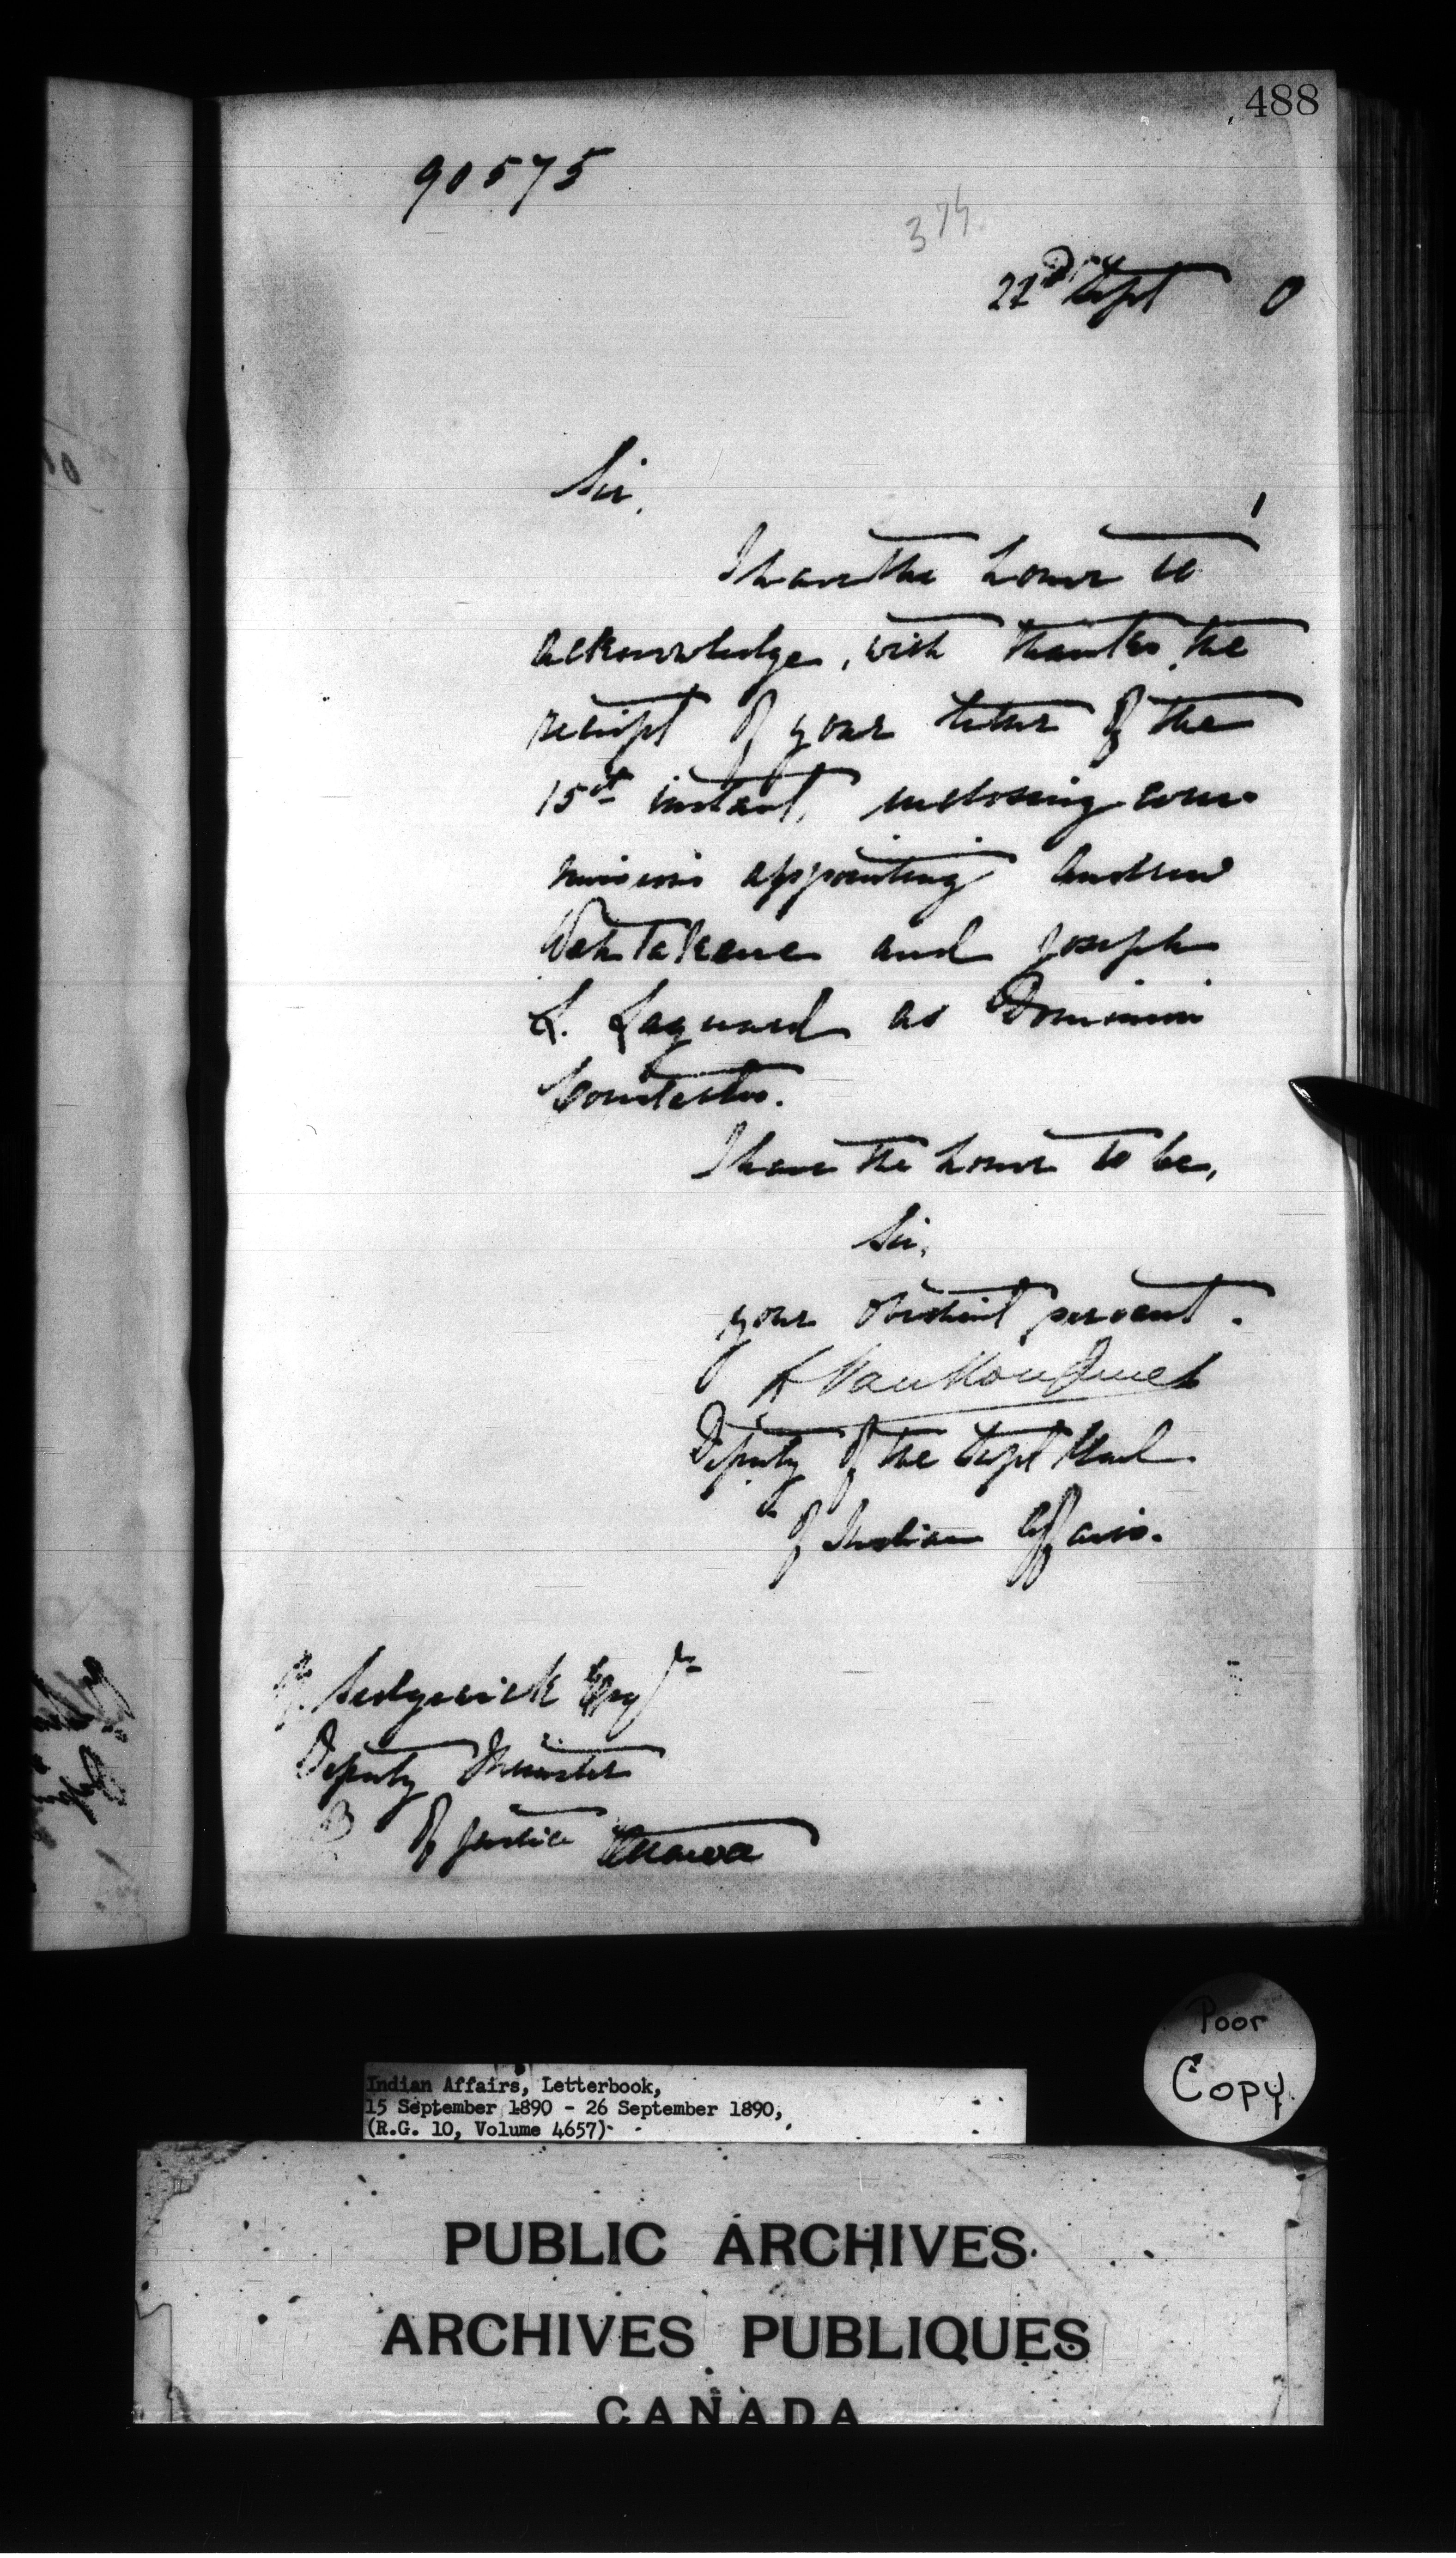 488
90575
374
22nd Sept 0
Sir,
I have the honor to
acknowledge, with thanks, the
receipt of your letter of the
15th instant, inclosing com-
missions appointing Andrew
and Joseph
L. as Dominion
Constables.
I have the honor to be,
Sir,
your obedient servant.
L VanKoughnet
Deputy of the Supt Genl
of Indian Affairs.
Sedgewick Esqre
Deputy Minister
of Justice Ottawa
Poor
Copy
Indian Affairs, Letterbook,
15 September 1890 - 26 September 1890,
(R.G. 10, Volume 4657)
PUBLIC ARCHIVES
ARCHIVES PUBLIQUES
CANADA